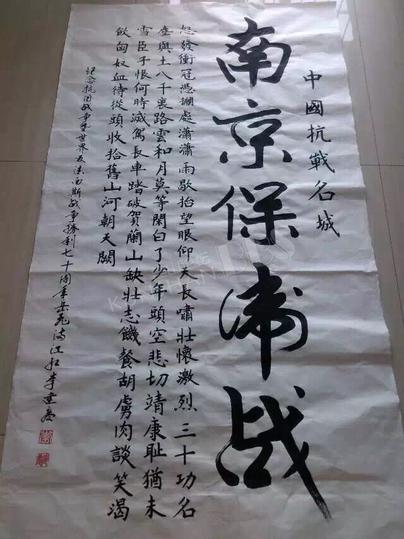 中國抗戰名城
南京保衛战
怒發衝冠憑欄處瀟瀟雨歇抬望眼仰天長嘯壯懷激烈三十功名
塵與土八千裏路雲和月莫等閑白了少年頭空悲切靖康耻猶未
雪臣子恨何時滅駕長車踏破賀蘭山缺壯志饑餐胡虜肉談笑渴
飲匈奴血待從頭收拾舊山河朝天闕
纪念抗日战争暨世界反法西斯战争勝利七十周年岳飛满江红李